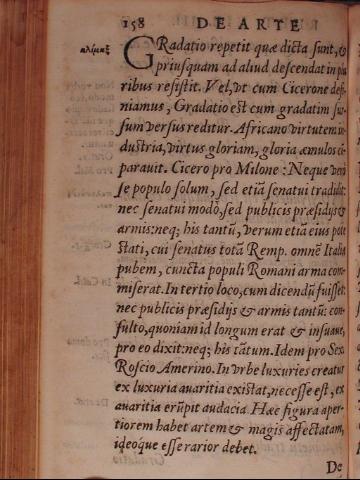 158 DE ARTE
κλίμαξ
GRadatio repetit quæ dicta sunt, &
priusquam ad aliud descendat in plu
ribus resistit. Vel, vt cum Cicerone defi
niamus, Gradatio est cum gradatim sur
sum versus reditur. Africano virtutem in
dustria, virtus gloriam, gloria æmulos cō
parauit. Cicero pro Milone: Neque verò
se populo solum, sed etiā senatui tradidit:
nec senatui modò, sed publicis præsidijs &
armis: neq; his tantū, verum etiam eius pote
stati, cui senatus totā Remp. omnē Italiæ
pubem, cuncta populi Romani arma com
miserat. In tertio loco, cum dicendū fuisset:
nec publicis præsidijs & armis tantū: con-
sulto, quoniam id longum erat & insuaue,
pro eo dixit: neq; his tātum. Idem pro Sex.
Roscio Amerino. In vrbe luxuries creatur
ex luxuria auaritia existat, necesse est, ex
auaritia erūpit audacia. Hæc figura aper-
tiorem habet artem & magis affectatam,
ideoque esse rarior debet.
De